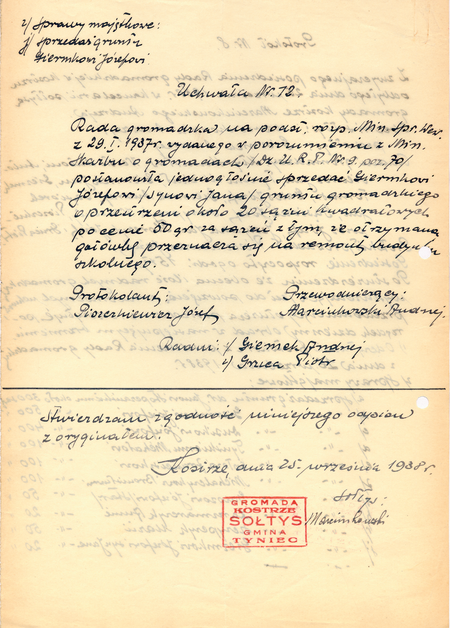 z/ Sprawy majątkowe:
j/ sprzedaż gruntu
Ziemkowi Józefowi
Uchwała Nr. 12.
Rada gromadzka na podst. rozp. Min. Spr. Wew.
z 29.I.1937r. wydanego w porozumieniu z Min.
Skarbu o gromadach /Dz. U. R. P. Nr. 9. poz. 70/
postanowiła jednogłośnie sprzedać Ziemkowi
Józefowi /synowi Jana/ gruntu gromadzkiego
o przestrzeni około 20 sążni kwadratowych
po cenie 60 gr. za sążeń z tym, że otrzymaną
gotówkę przeznacza się na remont budynku
szkolnego.
Protokolant: Przewodniczący:
Józef Marcinkowski Andrzej.
Radni: 1/ Ziemek Andrzej
2/ Piotr
Stwierdzam zgodność niniejszego odpisu
z oryginałem.
Kostrze, dnia 25. września 1938r.
Sołtys:
Marcinkowski
GROMADA
KOSTRZE
SOŁTYS
GMINA
TYNIEC